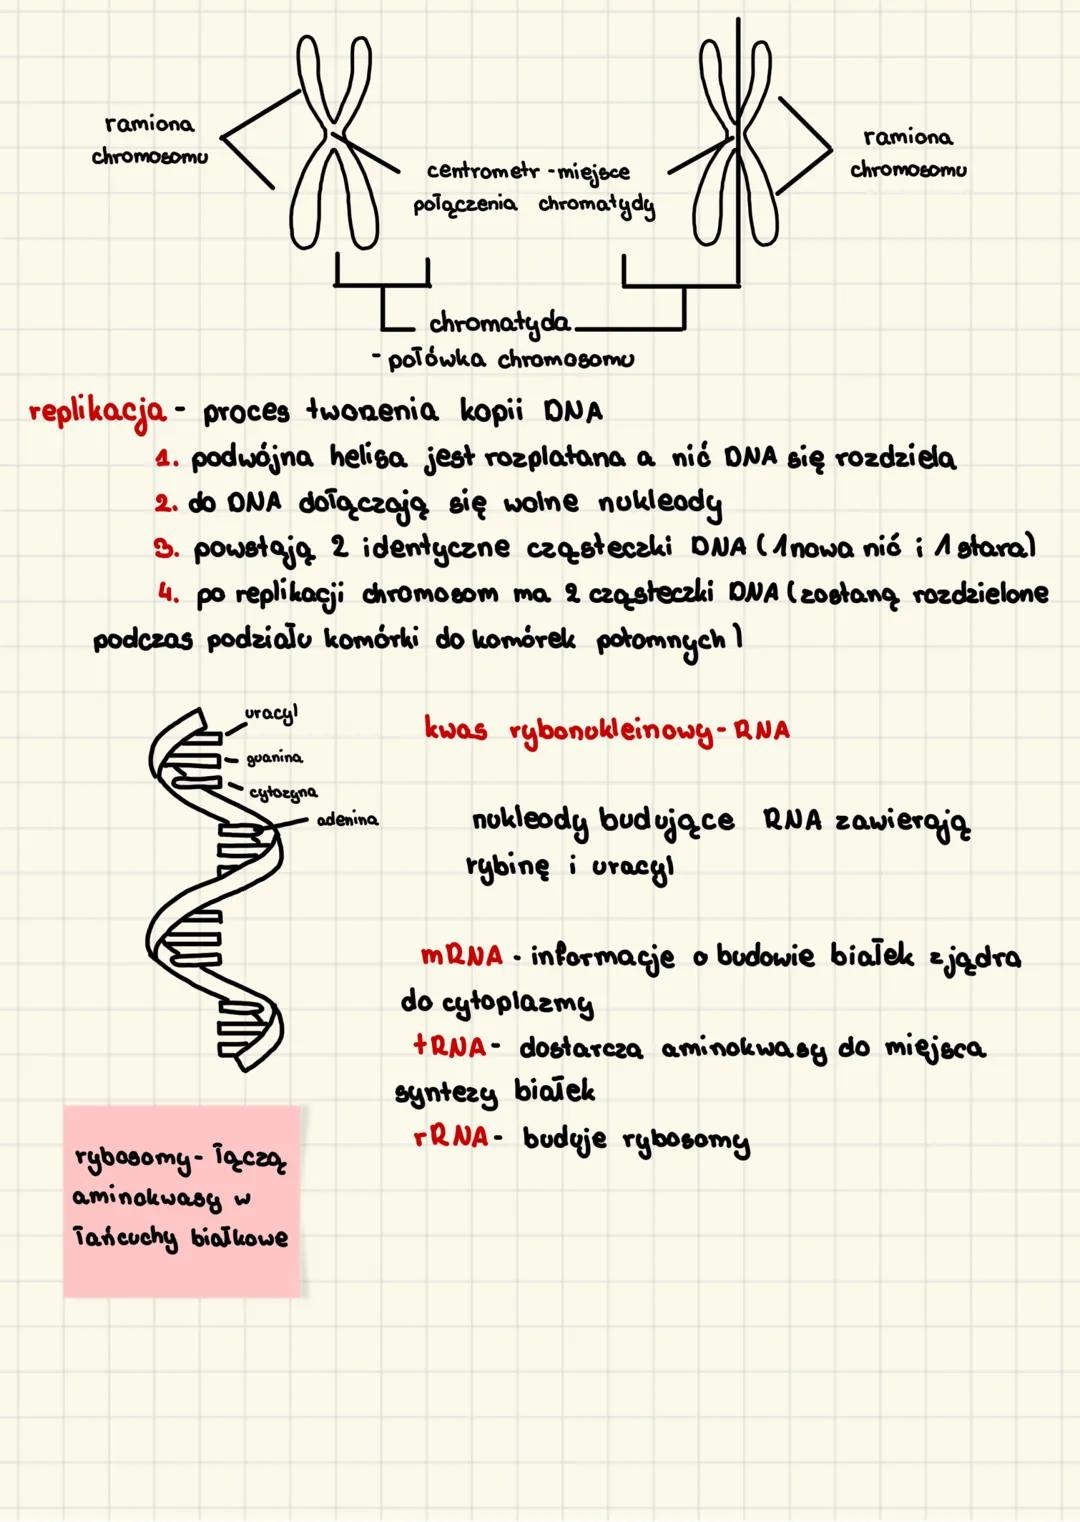 ramiona
chromosomu
centrometr - miejsce
połączenia chromatydy
ramiona
chromosomu
chromatyda
- połówka chromosomu
replikacja - proces tworzenia kopii DNA
1. podwójna helisa jest rozplatana a nić DNA się rozdziela
2. do DNA dołączają się wolne nukleody
3. powstają 2 identyczne cząsteczki DNA (1 nowa nić i 1 stara)
4. po replikacji chromosom ma 2 cząsteczki DNA (zostaną rozdzielone
podczas podziału komórki do komórek potomnych)
uracyl
guanina
cytozyna
adenina
kwas rybonukleinowy - RNA
nukleody budujące RNA zawierają
rybinę i uracyl
mRNA - informacje o budowie białek z jądra
do cytoplazmy
tRNA - dostarcza aminokwasy do miejsca
syntezy białek
rRNA - buduje rybosomy
rybosomy - łączą
aminokwasy w
łańcuchy białkowe